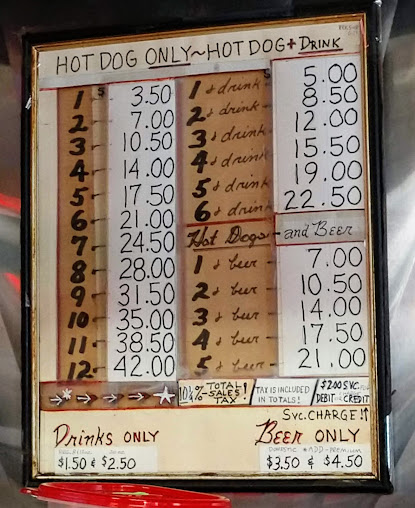 HOT DOG ONLY~HOT DOG + DRINK
1 - $ 3.50
2 - 7.00
3 - 10.50
4 - 14.00
5 - 17.50
6 - 21.00
7 - 24.50
8 - 28.00
9 - 31.50
10 - 35.00
11 - 38.50
12 - 42.00
1 & drink $ 5.00
2 & drink 8.50
3 & drink 12.00
4 & drink 15.50
5 & drink 19.00
6 & drink 22.50
Hot Dogs - and Beer
1 & beer 7.00
2 & beer 10.50
3 & beer 14.00
4 & beer 17.50
5 & beer 21.00
10¼% TOTAL SALES TAX!
TAX IS INCLUDED IN TOTALS!
$2.00 SVC. DEBIT CREDIT
SVC. CHARGE!!
Drinks ONLY
$1.50 & $2.50
Beer ONLY
DOMESTIC * ADD - PREMIUM
$3.50 & $4.50